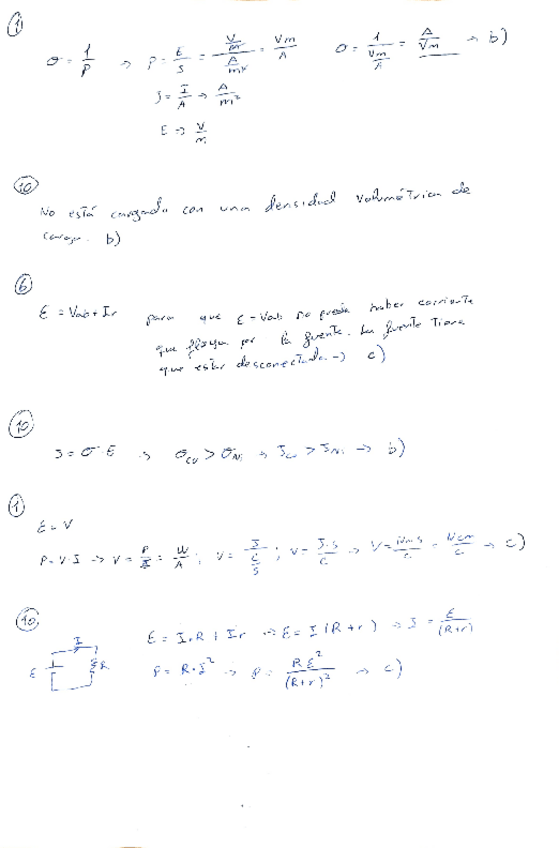 ①
σ = 1/ρ → ρ = E/J = (V/m)/(A/m²) = Vm/A   σ = 1/(Vm/A) = A/Vm → b)
J = I/A → A/m²
E → V/m
⑩
No está cargado con una densidad volumétrica de
carga. b)
⑥
ε = Vab + Ir   para que ε = Vab no puede haber corriente
que fluya por la fuente. La fuente tiene
que estar desconectada → c)
⑩
J = σ·E → σcu > σNi → Jcu > JNi → b)
①
ε = V
P = V·I → V = P/I = W/A ; V = J/(C/s)/s ; V = J·s/C → V = → c)
⑩
I
ε R
ε = I·R + Ir → ε = I(R+r) → I = ε/(R+r)
P = R·I² → P = Rε²/(R+r)² → c)